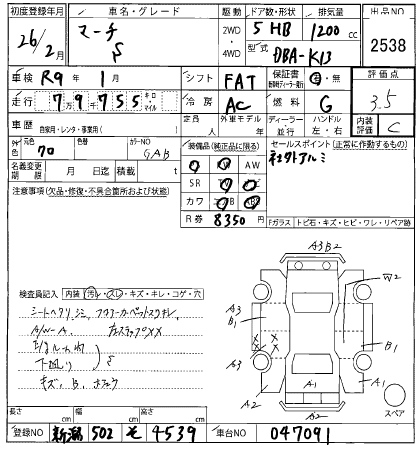 初度登録年月 車名・グレード 駆動 ドア数・形状 排気量 出品NO
26/2月 マーチ S 2WD・4WD 5 HB 1200 cc 2538
型式 DBA-K13
車検 R9年1月 シフト FAT 保証書 有・無 評価点
走行 7万9千755 キロ・マイル 冷房 AC 燃料 G 3.5
車歴 自家用・レンタ・事業用( ) 定員 人 外車モデル 年 ディーラー 並行 ハンドル 左・右 内装評価 C
外色 元色 70 色替 カラーNO GAB
装備品(純正品に限る) セールスポイント(正常に作動するもの)
名義変更期限 月 日迄 積載 t
注意事項(欠品・修復・不具合箇所および状態)
SR
カワ
R券 8350円
Fガラス トビ石・キズ・ヒビ・ワレ・リペア跡
A3B2
W2
A3
B1
B1
A3
A2
A1
A1
A2
スペア
検査員記入 内装 汚レ・スレ・キズ・キレ・コゲ・穴
シートヘタリ
A/W-A
下廻り
キズ、B、
長さ cm 幅 cm 高さ cm
登録NO 新潟 502 4539 車台NO 047091